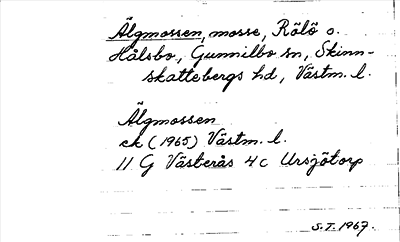 Älgmossen, mosse, Rölö o.
Hålsbo, Gunnilbo sn, Skinn-
skattebergs hd, Västm. l.
Älgmossen
ek (1965) Västm. l.
11 G Västerås 4 c Ursjötorp
S.T. 1967.